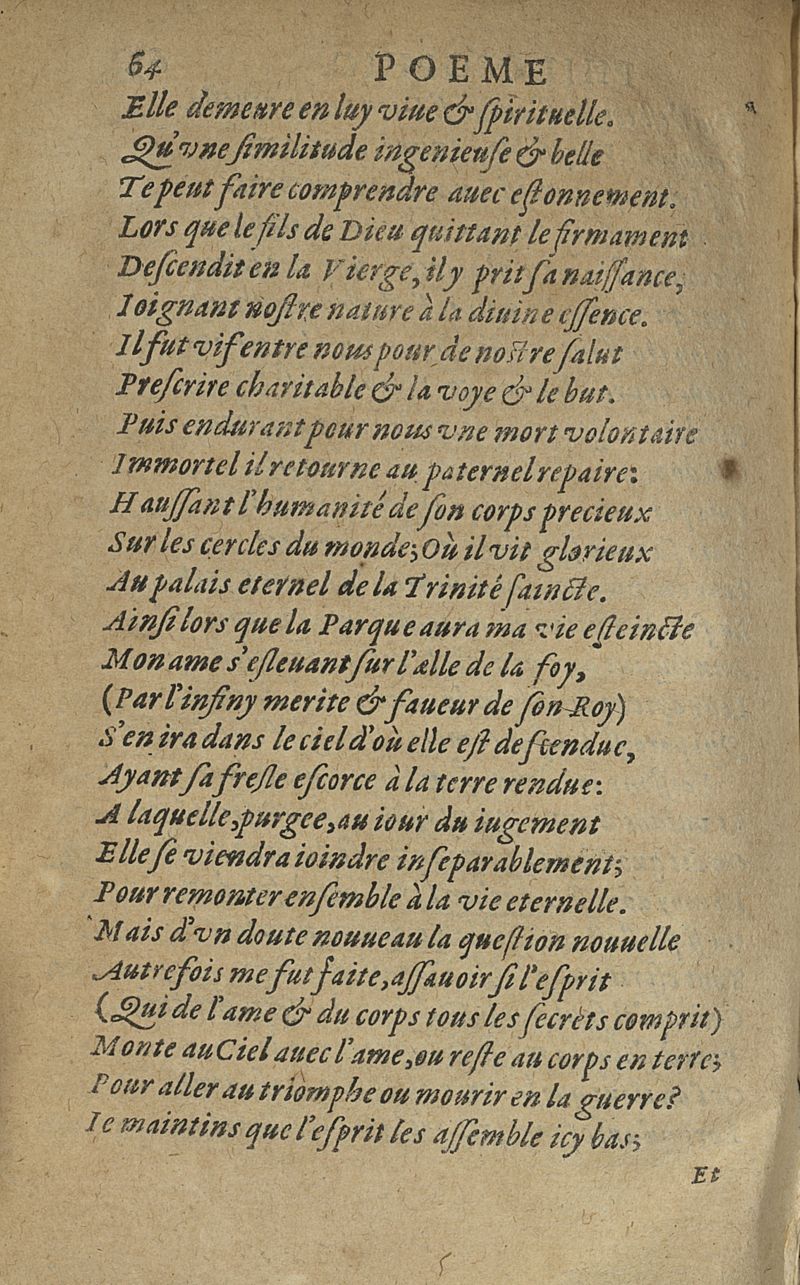 64 POEME
Elle demeure en luy viue & ſpirituelle.
Qu'vne ſimilitude ingenieuſe & belle
Te peut faire comprendre auec eſtonnement.
Lors que le fils de Dieu quittant le firmament
Deſcendit en la Vierge, il y prit ſa naiſſance,
Ioignant noſtre nature à la diuine eſſence.
Il fut vif entre nous pour de noſtre ſalut
Preſcrire charitable & la voye & le but.
Puis endurant pour nous vne mort volontaire
Immortel il retourne au paternel repaire:
Hauſſant l'humanité de ſon corps precieux
Sur les cercles du monde; Où il vit glorieux
Au palais eternel de la Trinité ſaincte.
Ainſi lors que la Parque aura ma vie eſteincte
Mon ame s'eſleuant ſur l'ælle de la foy,
(Par l'infiny merite & faueur de ſon Roy)
S'en ira dans le ciel d'où elle eſt deſcendue,
Ayant ſa freſle eſcorce à la terre rendue:
A laquelle, purgee, au iour du iugement
Elle ſe viendra ioindre inſeparablement;
Pour remonter enſemble à la vie eternelle.
Mais d'vn doute nouueau la queſtion nouuelle
Autrefois me fut faite, aſſauoir ſi l'eſprit
(Qui de l'ame & du corps tous les ſecrets comprit)
Monte au Ciel auec l'ame, ou reſte au corps en terre;
Pour aller au triomphe ou mourir en la guerre?
Ie maintins que l'eſprit les aſſemble icy bas;
Et